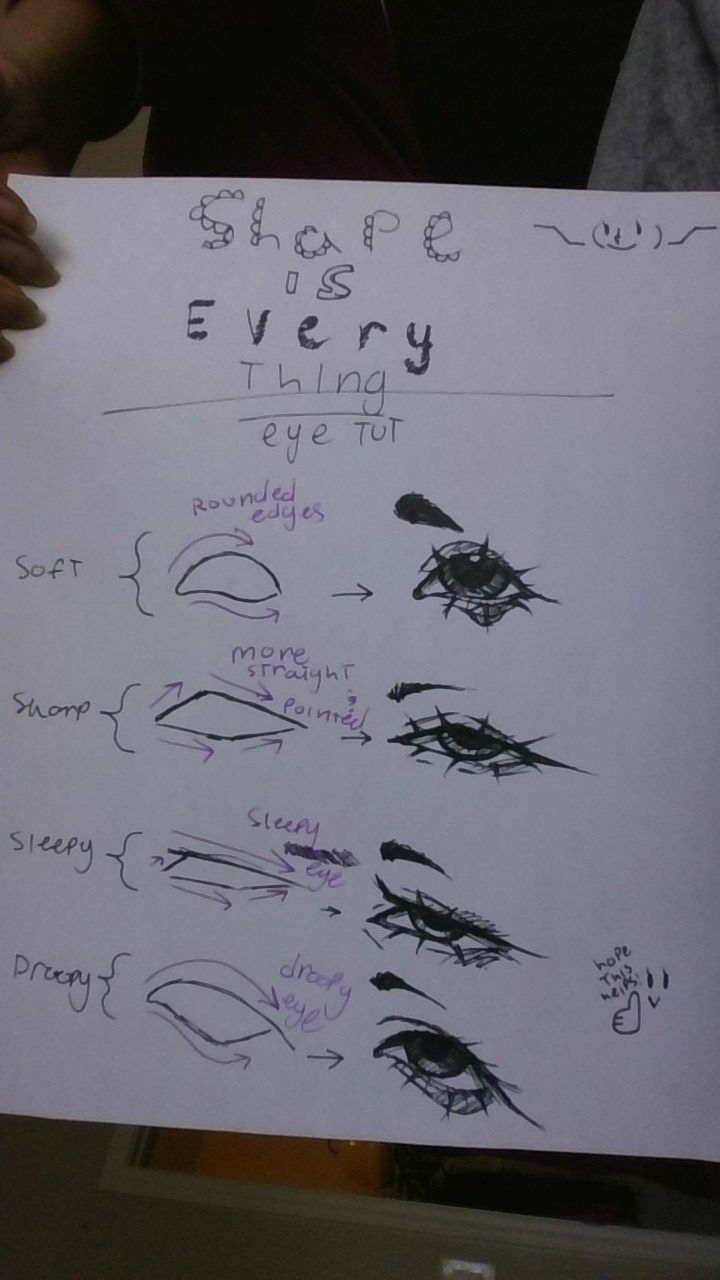 Shape
is
Every
Thing
eye TUT
Rounded
edges
Soft
more
straight
&
pointed
Sharp
Sleepy
eye
Sleepy
droopy
eye
Droopy
hope
This
helps!